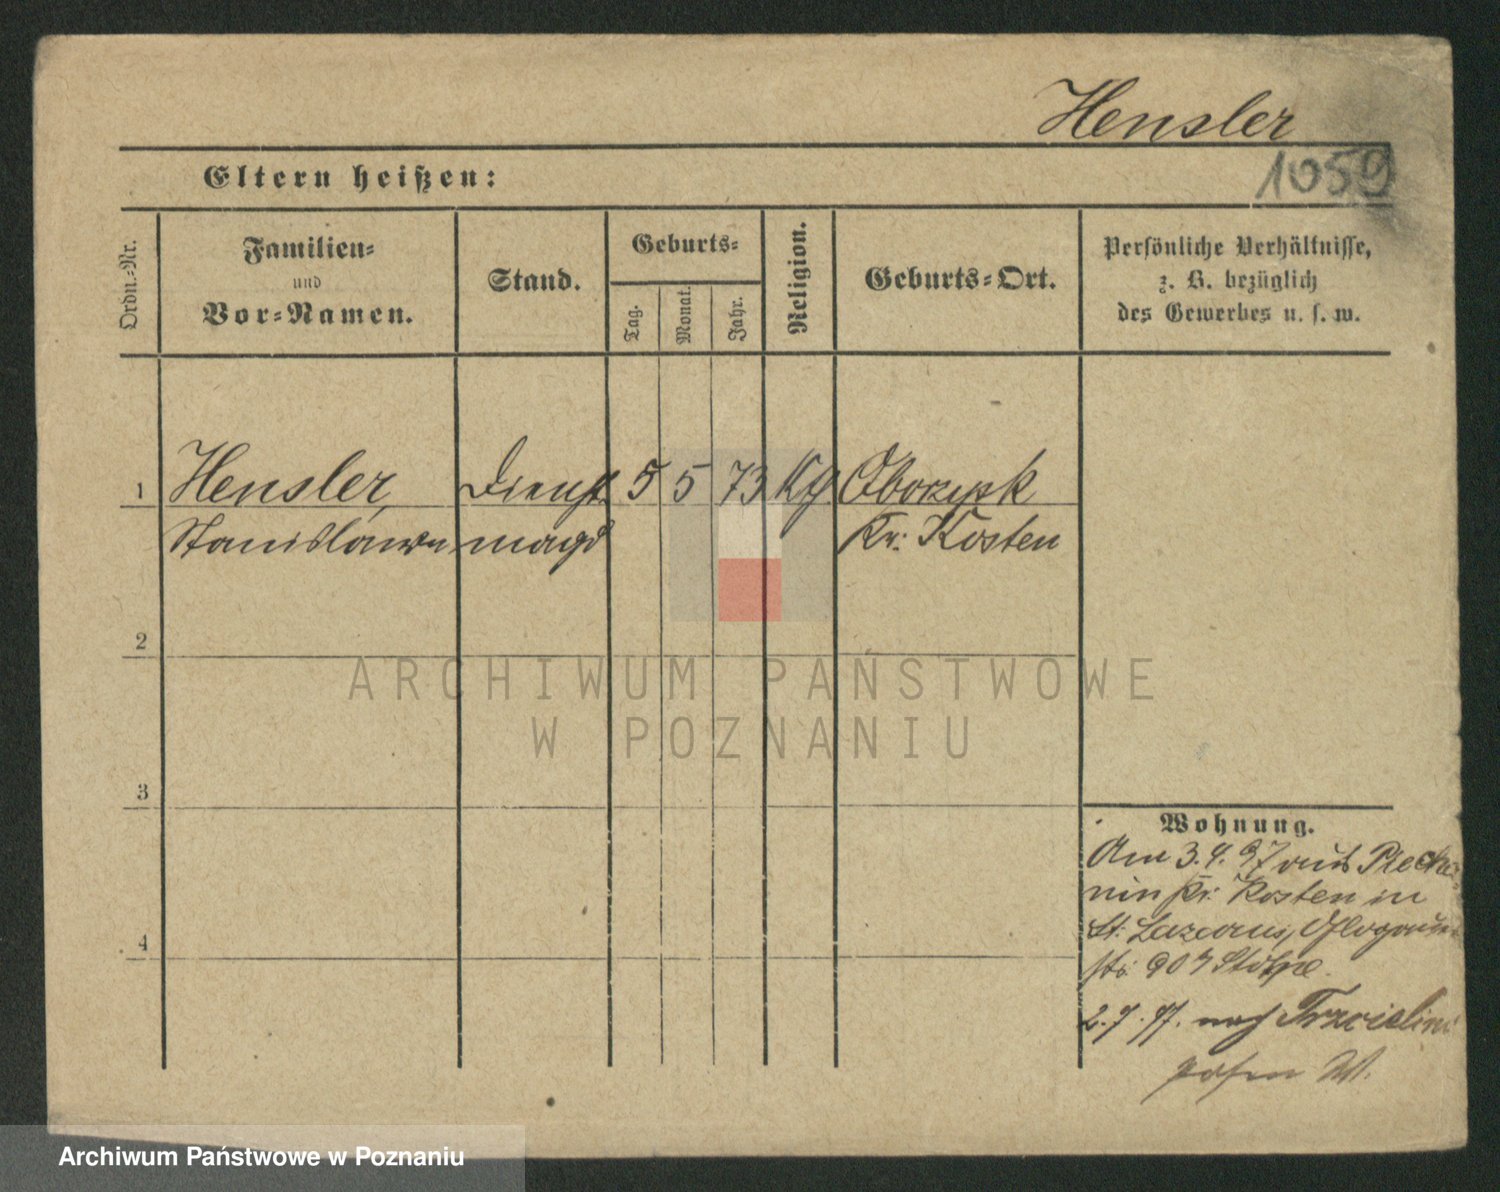 Hensler
1059
Eltern heißen:
Ordn.-Nr.
Familien-
und
Vor-Namen.
Stand.
Geburts-
Tag.
Monat.
Jahr.
Religion.
Geburts-Ort.
Persönliche Verhältnisse,
z. B. bezüglich
des Gewerbes u. s. w.
1 Hensler, Dienst 5 5 73 Kg Oborzysk
Stanislawa magd Kr: Kosten
2
3
4
Wohnung.
Am 3.4.97 aus
nin Kr: Kosten in
St: Lazarus, Glogauer
str: 90 Stöhre.
2.7.97. nach
Posen W.
ARCHIWUM PAŃSTWOWE
W POZNANIU
Archiwum Państwowe w Poznaniu